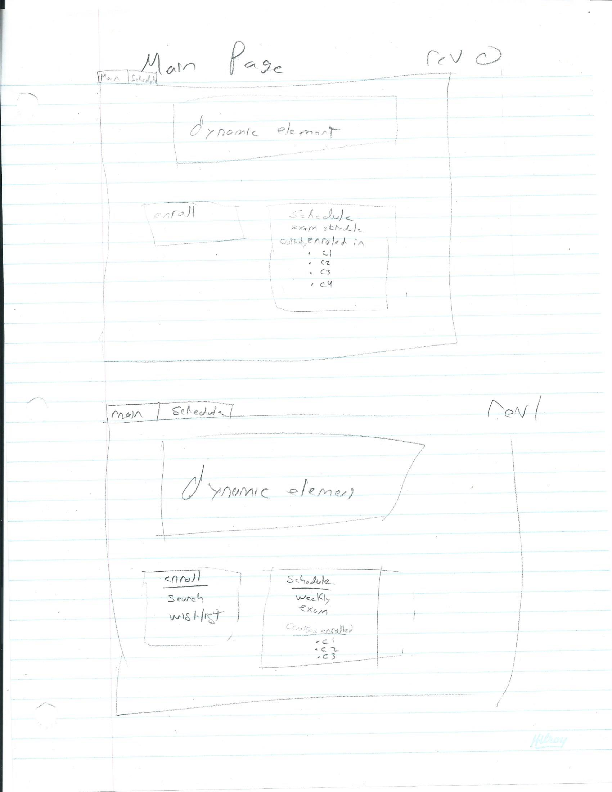 Main Page rev 0
Main Schedule
dynamic element
enroll
Schedule
exam schedule
enrolled in
• C1
• C2
• C3
• C4
main Schedule rev 1
dynamic element
enroll
Search
wishlist
Schedule
weekly
exam
enrolled
• C1
• C2
• C3
Hilroy